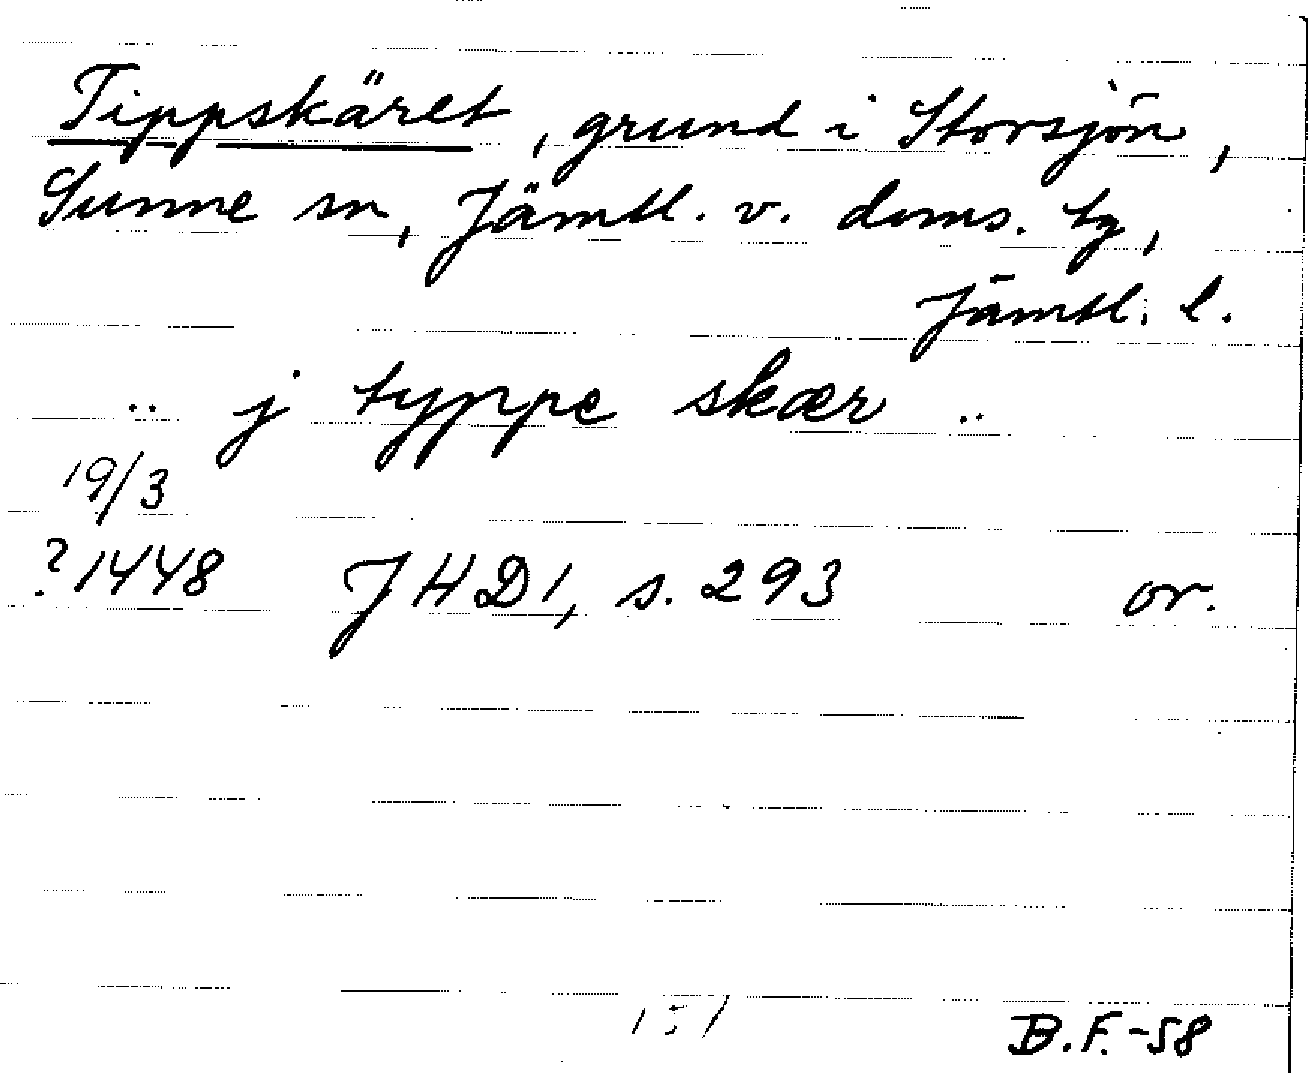 Tippskäret, grund i Storsjön,
Sunne sn, Jämtl. v. doms. tg,
Jämtl. l.
.. j typpe skær ..
19/3
?1448 JHD1, s. 293 or.
B.F.-58